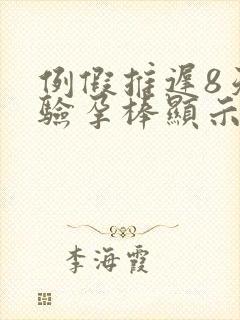 例假推遲8
驗孕棒顯示
李海霞